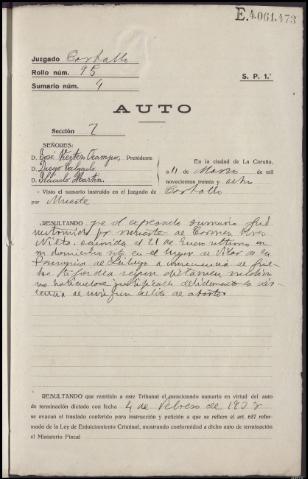 E.4.061.473
Juzgado Carballo
Rollo núm. 95
S. P. 1.ª
Sumario núm. 4
AUTO
Sección 2
SEÑORES:
D. José Victor Presidente
D. Diego Salgado
D. Martin
En la ciudad de La Coruña,
a 11 de Marzo de mil
novecientos treinta y ocho
Visto el sumario instruido en el Juzgado de Carballo
por Muerte
RESULTANDO que el expresado sumario fué
instruido por muerte de Carmen
ocurrida el 21 de Enero último en
su domicilio sito en el lugar de Vilar de la
Parroquia de a consecuencia de
segun dictamen
no habiendose justificado debidamente la
de un delito de aborto
RESULTANDO que remitido a este Tribunal el precitado sumario en virtud del auto
de terminación dictado con fecha 4 de Febrero de 1938
se evacuó el traslado conferido para instrucción y petición a que se refiere el art. 627 refor-
mado de la Ley de Enjuiciamiento Criminal, mostrando conformidad a dicho auto de terminación
el Ministerio Fiscal